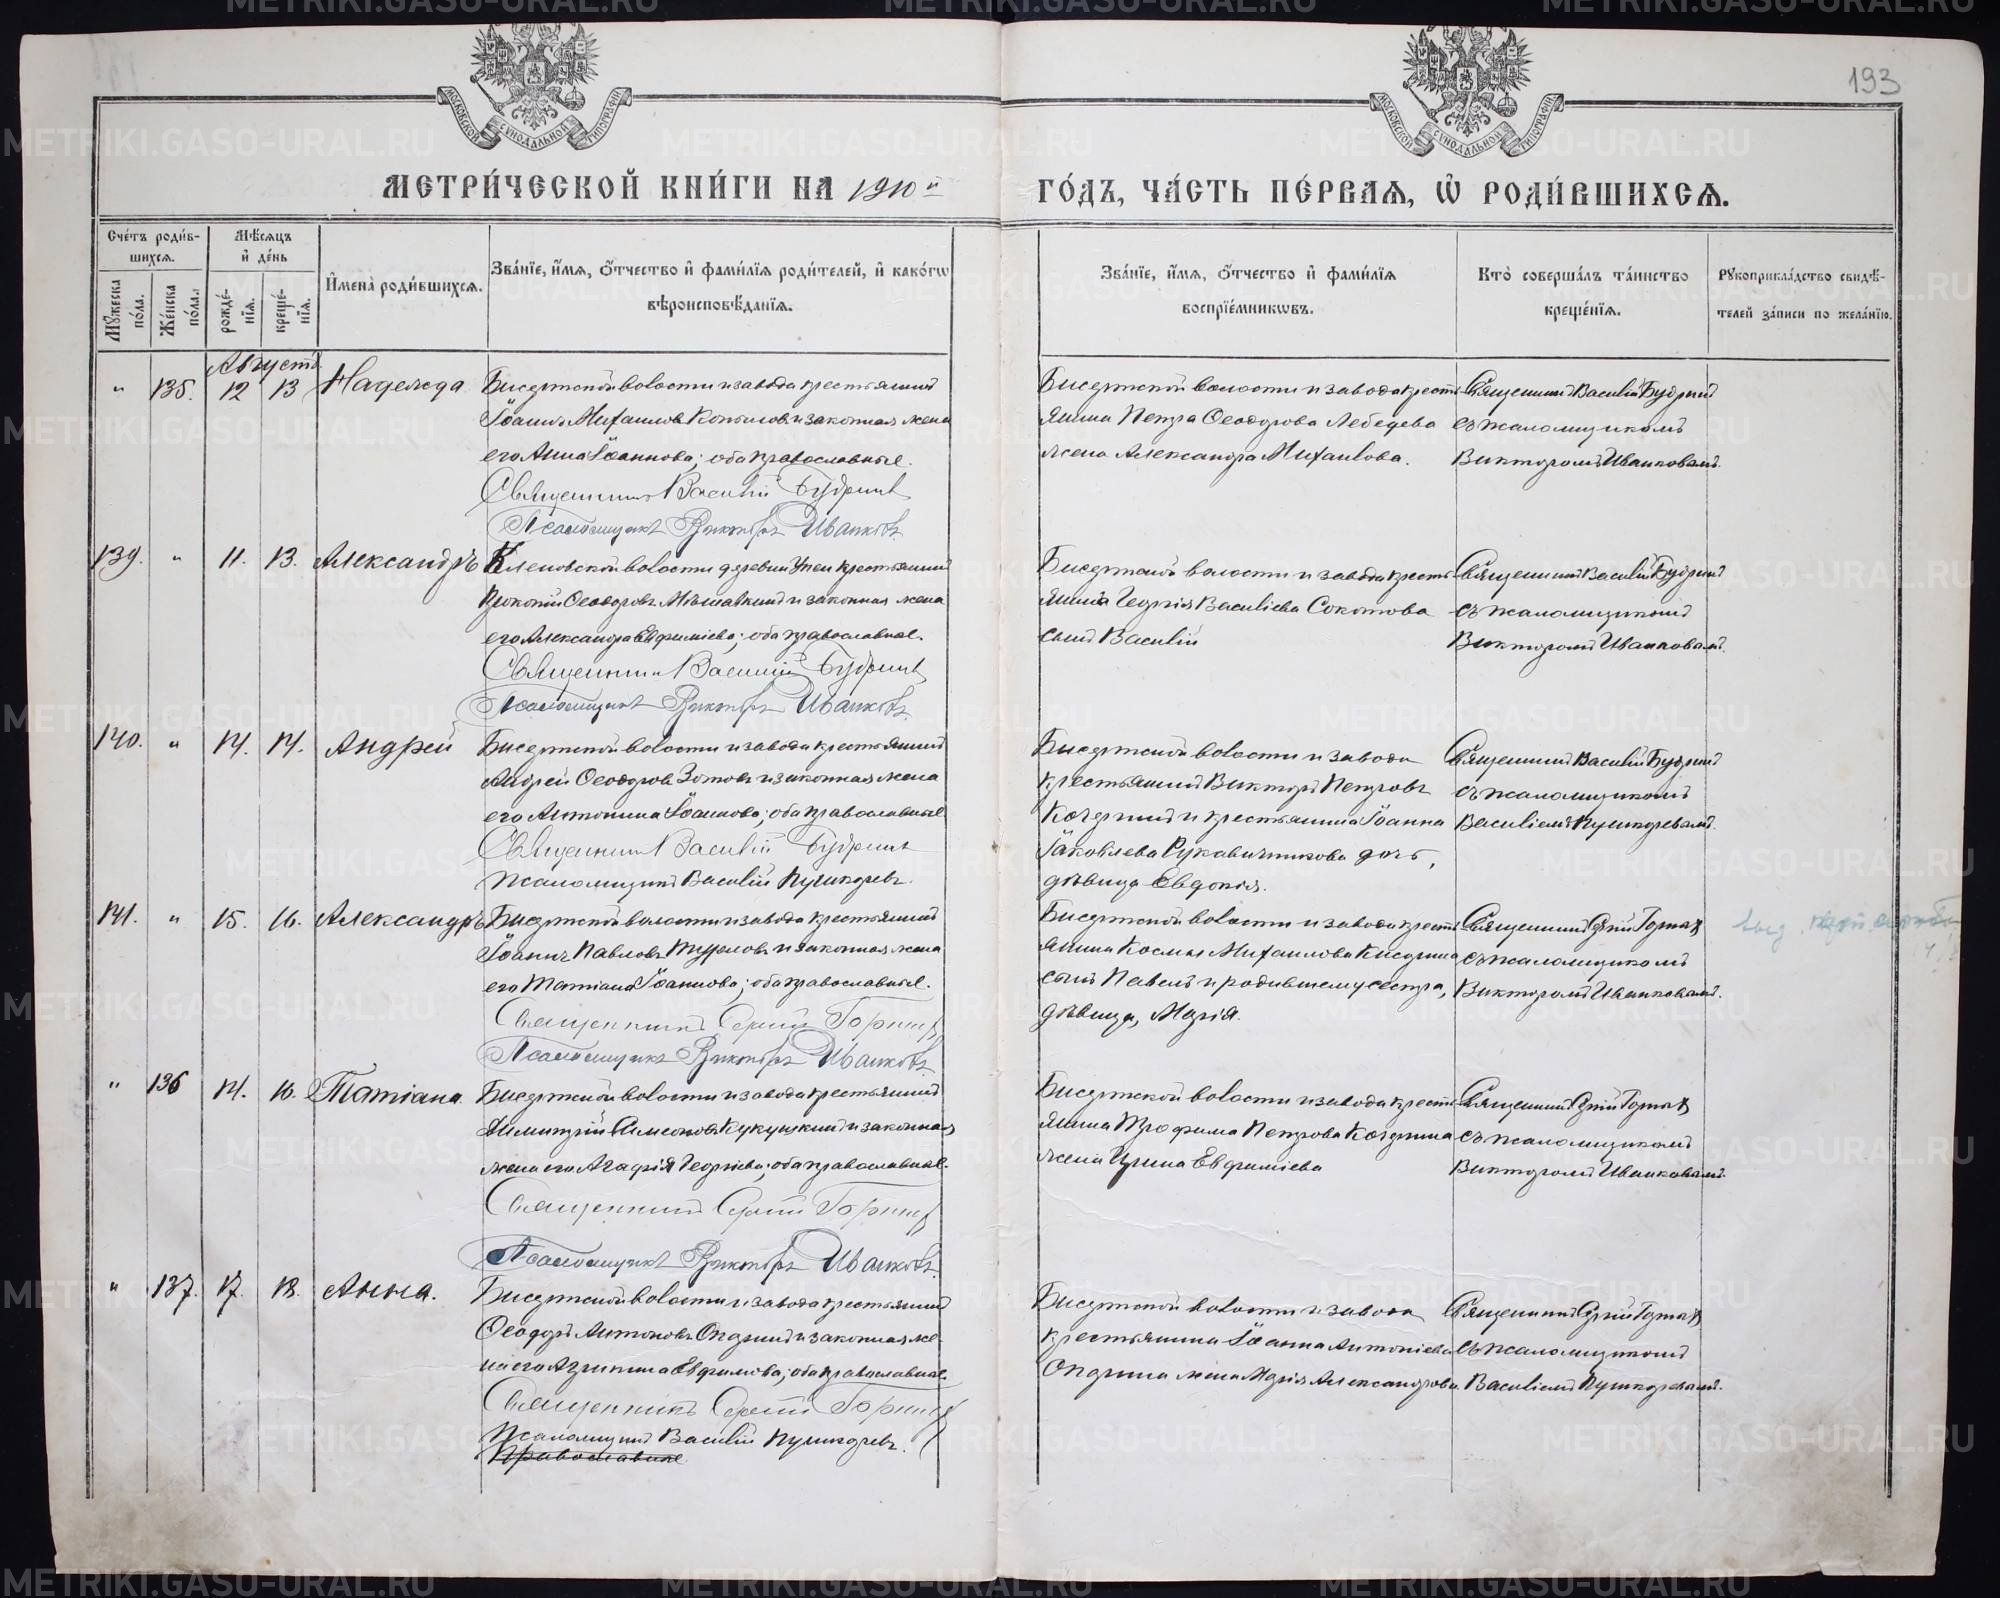 193
МОСКОВСКОЙ СѴНОДАЛЬНОЙ ТИПОГРАФІИ
МОСКОВСКОЙ СѴНОДАЛЬНОЙ ТИПОГРАФІИ
МЕТРИ́ЧЕСКОЙ КНИ́ГИ НА 1910й ГО́ДЪ, ЧА́СТЬ ПЕ́РВАЯ, Ѡ РОДИ́ВШИХСЯ.
Сче́тъ роди́вшихся.
Му́жеска по́ла.
Же́нска по́ла.
Мѣ́сяцъ и҆ де́нь
рожде́нїя.
креще́нїя.
И҆мена̀ роди́вшихся.
Зва́нїе, и҆́мя, ѻ҆́тчество и҆ фами́лїя роди́телей, и҆ како́гѡ
вѣроисповѣ́данїя.
Зва́нїе, и҆́мя, ѻ҆́тчество и҆ фами́лїя
воспрїе́мникѡвъ.
Кто̀ соверша́лъ та́инство
креще́нїя.
Рукоприкла́дство свидѣ́-
телей за́писи по жела́нїю.
Августъ
" 135. 12 13 Надежда
Бисертской волости и завода крестьянинъ
Іоаннъ Михаиловъ Копыловъ и законная жена
его Анна Іоаннова; оба православные.
Священникъ Василій Будринъ
Псаломщикъ Викторъ Иванковъ
Бисертской волости и завода кресть
янина Петра Ѳеодорова Лебедева
жена Александра Михаилова.
Священникъ Василій Будринъ
съ псаломщикомъ
Викторомъ Иванковымъ.
139. " 11. 13. Александръ
Кленовской волости деревни Упеи крестьянинъ
Прокопій Ѳеодоровъ Мѣшавкинъ и законная жена
его Александра Евфиміева; оба православные.
Священникъ Василій Будринъ
Псаломщикъ Викторъ Иванковъ.
Бисертской волости и завода кресть
янина Георгія Василіева Сокотова
сынъ Василій
Священникъ Василій Будринъ
съ псаломщикомъ
Викторомъ Иванковымъ.
140. " 14. 14. Андрей
Бисертской волости и завода крестьянинъ
Андрей Ѳеодоровъ Зотовъ и законная жена
его Антонина Іоаннова; оба православные
Священникъ Василій Будринъ
Псаломщикъ Василій Пушкаревъ.
Бисертской волости и завода
крестьянинъ Викторъ Петровъ
Кочергинъ и крестьянина Іоанна
Іаковлева Рукавишникова дочь,
дѣвица Евдокія.
Священникъ Василій Будринъ
съ псаломщикомъ
Василіемъ Пушкаревымъ.
141. " 15. 16. Александръ
Бисертской волости и завода крестьянинъ
Іоаннъ Павловъ и законная жена
его Татіана Іоаннова; оба православные.
Священникъ Сергій Горныхъ
Псаломщикъ Викторъ Иванковъ.
Бисертской волости и завода кресть
янина Космы Михаилова
сынъ Павелъ и родившему сестра,
дѣвица, Марія.
Священникъ Сергій Горныхъ
съ псаломщикомъ
Викторомъ Иванковымъ.
" 136 14. 16. Татіана
Бисертской волости и завода крестьянинъ
Димитрій Симеоновъ Кукуцкій и законная
жена его Агафія Георгіева; оба православные.
Священникъ Сергій Горныхъ
Псаломщикъ Викторъ Иванковъ.
Бисертской волости и завода кресть
янина Трофима Петрова Кочергина
жена Ирина Евфиміева
Священникъ Сергій Горныхъ
съ псаломщикомъ
Викторомъ Иванковымъ.
" 137. 17. 18. Анна.
Бисертской волости и завода крестьянинъ
Ѳеодоръ Антоновъ Опаринъ и законная же-
на его Агрипина Евфимова; оба православные.
Священникъ Сергій Горныхъ
Псаломщикъ Василій Пушкаревъ.
Православные
Бисертской волости и завода
крестьянина Іоанна Антоніева
Опарина жена Марія Александрова.
Священникъ Сергій Горныхъ
съ псаломщикомъ
Василіемъ Пушкаревымъ.
METRIKI.GASO-URAL.RU